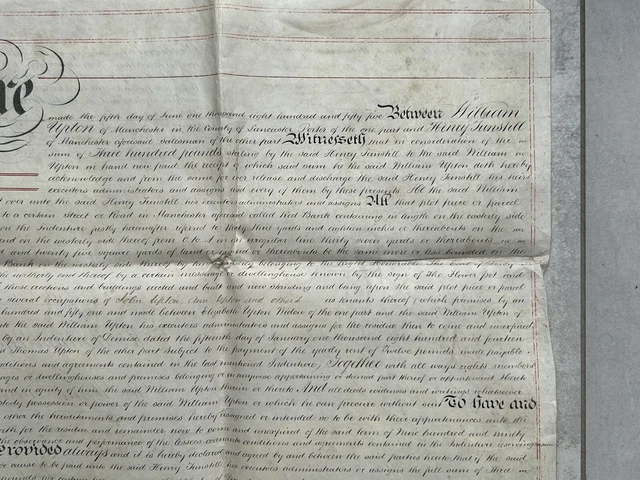 re
made the fifth day of June one thousand eight hundred and fifty five Between William
Upton of Manchester in the County of Lancaster of the one part and Henry Tunstill
of Manchester aforesaid Salesman of the other part Witnesseth that in consideration of the
sum of Three hundred pounds sterling by the said Henry Tunstill to the said William
Upton in hand now paid, the receipt of which said sum he the said William Upton doth hereby
acknowledge and from the same for ever release and discharge the said Henry Tunstill his heirs
executors administrators and assigns and every of them by these presents He the said William
over unto the said Henry Tunstill his executors administrators and assigns All that plot piece or parcel
to a certain Street or Road in Manchester aforesaid called Red Bank containing in length on the easterly side
on the Indenture hereinafter to thirty three yards and eighteen inches or thereabouts on the
and on the westerly side thereof from irregular line thirty seven yards or thereabouts
and twenty five square yards of land or ground or thereabouts be the same more or less bounded on the
Bank on the westerly side thereof by
the northerly end thereof by a certain messuage or dwellinghouse known by the sign of The Flower pot and
those erections and buildings erected and built and now standing and being upon the said plot piece or parcel
several occupations of John Upton, Ann Upton and others as tenants thereof (which premises by an
hundred and fifty one and made between Elizabeth Upton Widow of the one part and the said William Upton of
unto the said William Upton his executors administrators and assigns for the residue then to come and unexpired
by an Indenture of Demise dated the fifteenth day of January one thousand eight hundred and fourteen
Thomas Upton of the other part Subject to the payment of the yearly rent of Twelve pounds, made payable
conditions and agreements contained in the last mentioned Indenture, Together with all ways rights members
or dwellinghouses and premises belonging or in anywise appertaining or deemed part thereof or appurtenant thereto
and in agency of him the said William Upton therein or thereto And all deeds evidences and writings whatsoever
custody possession or power of the said William Upton or which he can procure without suit To have and
other the hereditaments and premises hereby assigned or intended so to be with their appurtenances unto the
for the residue and remainder now to come and unexpired of the said term of Nine hundred and ninety
the observance and performance of the lessees covenants conditions and agreements contained in the Indenture
Provided always and it is hereby declared and agreed by and between the said parties hereto that if the said
or cause to be paid unto the said Henry Tunstill his executors administrators or assigns the full sum of Three